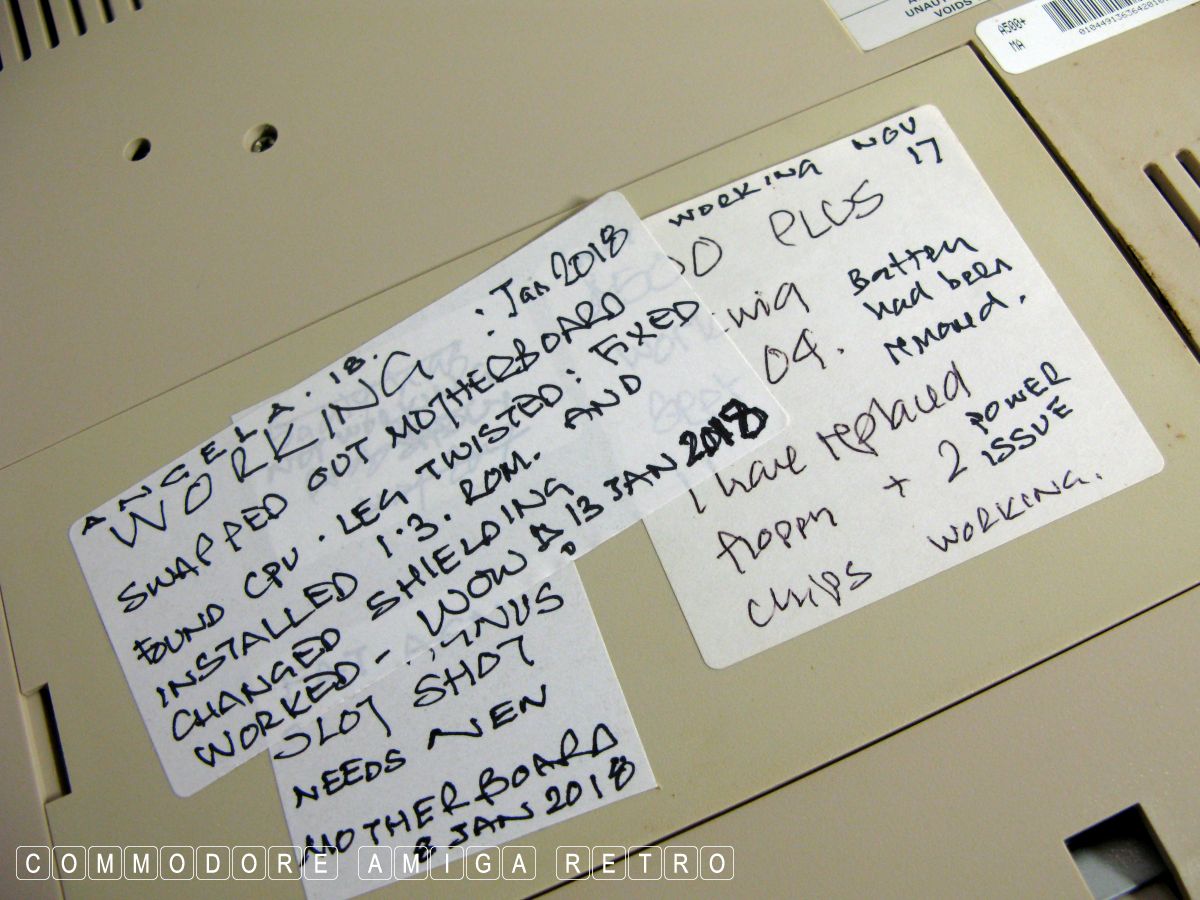 UNAUT
VOIDS
A500+
MA
WORKING NOV
17
00 PLUS
Battery
had been
removed.
04.
I have replaced
floppy + 2 POWER
ISSUE
chips working.
ANGELA. 18.
WORKING : Jan 2018
SWAPPED OUT MOTHERBOARD
FOUND CPU. LEG TWISTED: FIXED
INSTALLED 1.3. ROM. AND
CHANGED SHIELDING
WORKED - WOW 13 JAN 2018
SLOT SHOT
NEEDS NEW
MOTHERBOARD
8 JAN 2018
COMMODORE AMIGA RETRO